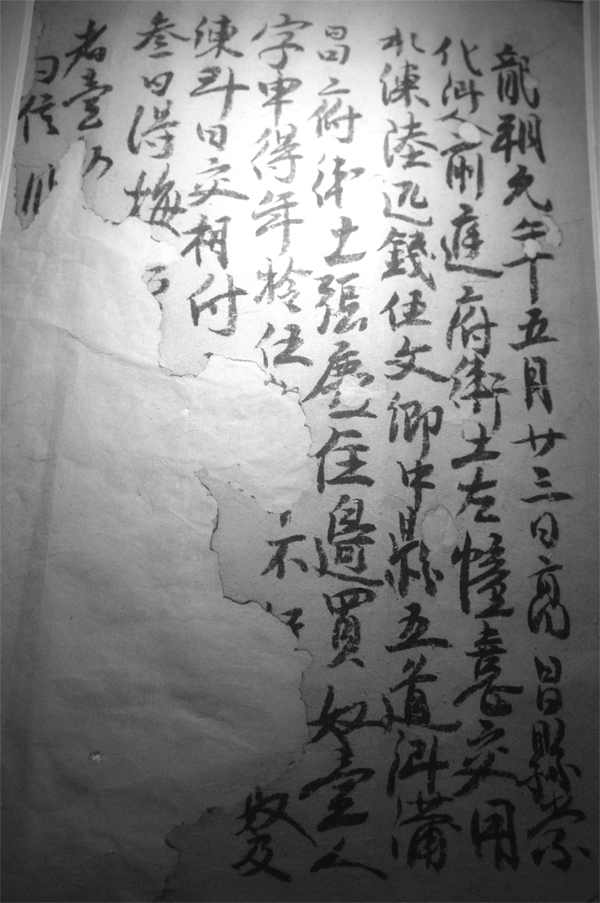 龍朔元年五月廿三日高昌縣崇
化鄉人前庭府衛士左憧憙交用
水練陸疋錢伍文柳中縣五道鄉蒲
昌府衛士張慶住邊買奴壹人
字申得年拾伍 不 奴及
練即日交相付
叁日得悔
者壹
信